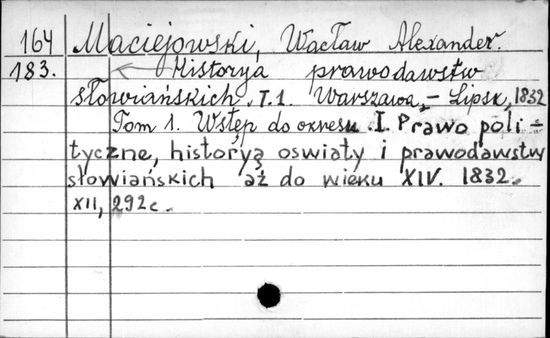 164 Maciejowski, Wacław Alexander.
183. Historya prawodawstw
słowiańskich. T.1. Warszawa – Lipsk, 1832
Tom 1. Wstęp do okresu I. Prawo poli-
tyczne, historyą oswiaty i prawodawstw
słowiańskich aż do wieku XIV. 1832.
XII, 292 c.